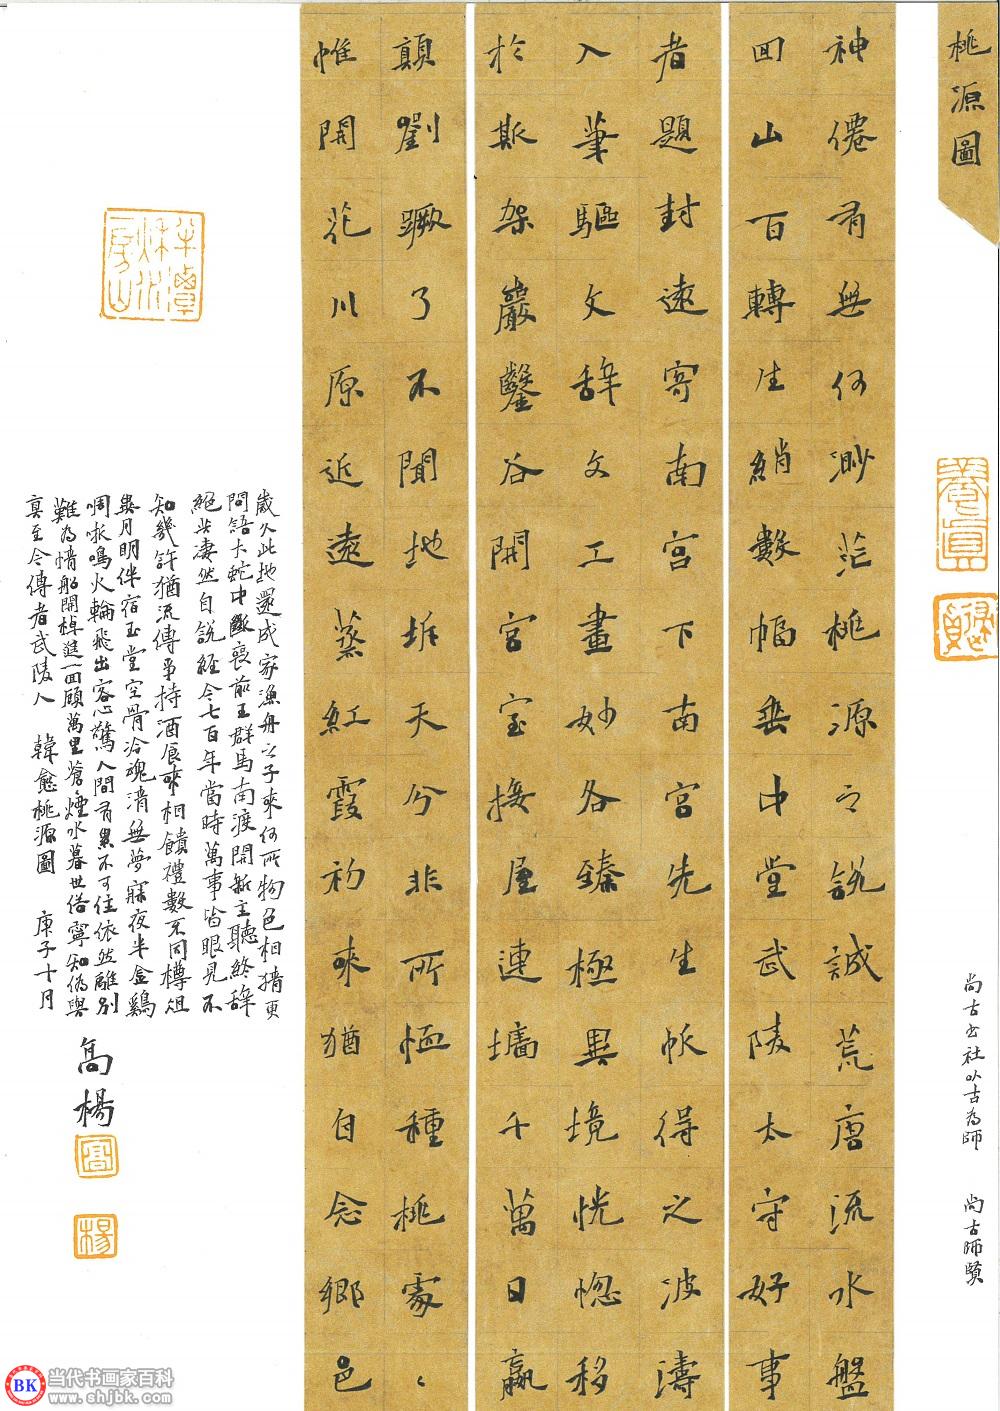 桃源圖
尚古书社以古為師 尚古師賢
神僊有無何渺茫桃源之說誠荒唐流水盤
回山百轉生綃數幅垂中堂武陵太守好事
者題封遠寄南宮下南宮先生忻得之波濤
入筆驅文辭文工畫妙各臻極異境恍惚移
於斯架巖鑿谷開宮室接屋連墻千萬日嬴
顛劉蹶了不聞地坼天分非所恤種桃處々
惟開花川原近遠蒸紅霞初來猶自念鄉邑
歲久此地還成家漁舟之子來何所物色相猜更
問語大蛇中斷喪前王群馬南渡開新主聽終辭
絕共淒然自說經今七百年當時萬事皆眼見不
知幾許猶流傳爭持酒食來相饋禮數不同樽俎
異月明伴宿玉堂空骨冷魂清無夢寐夜半金鷄
啁哳鳴火輪飛出客心驚人間有累不可住依然離別
難為情船開棹進一回顧萬里蒼々煙水暮世俗寧知偽與
真至今傳者武陵人 韓愈桃源圖 庚子十月
高楊
高
楊
BK
当代书画家百科
www.shjbk.com